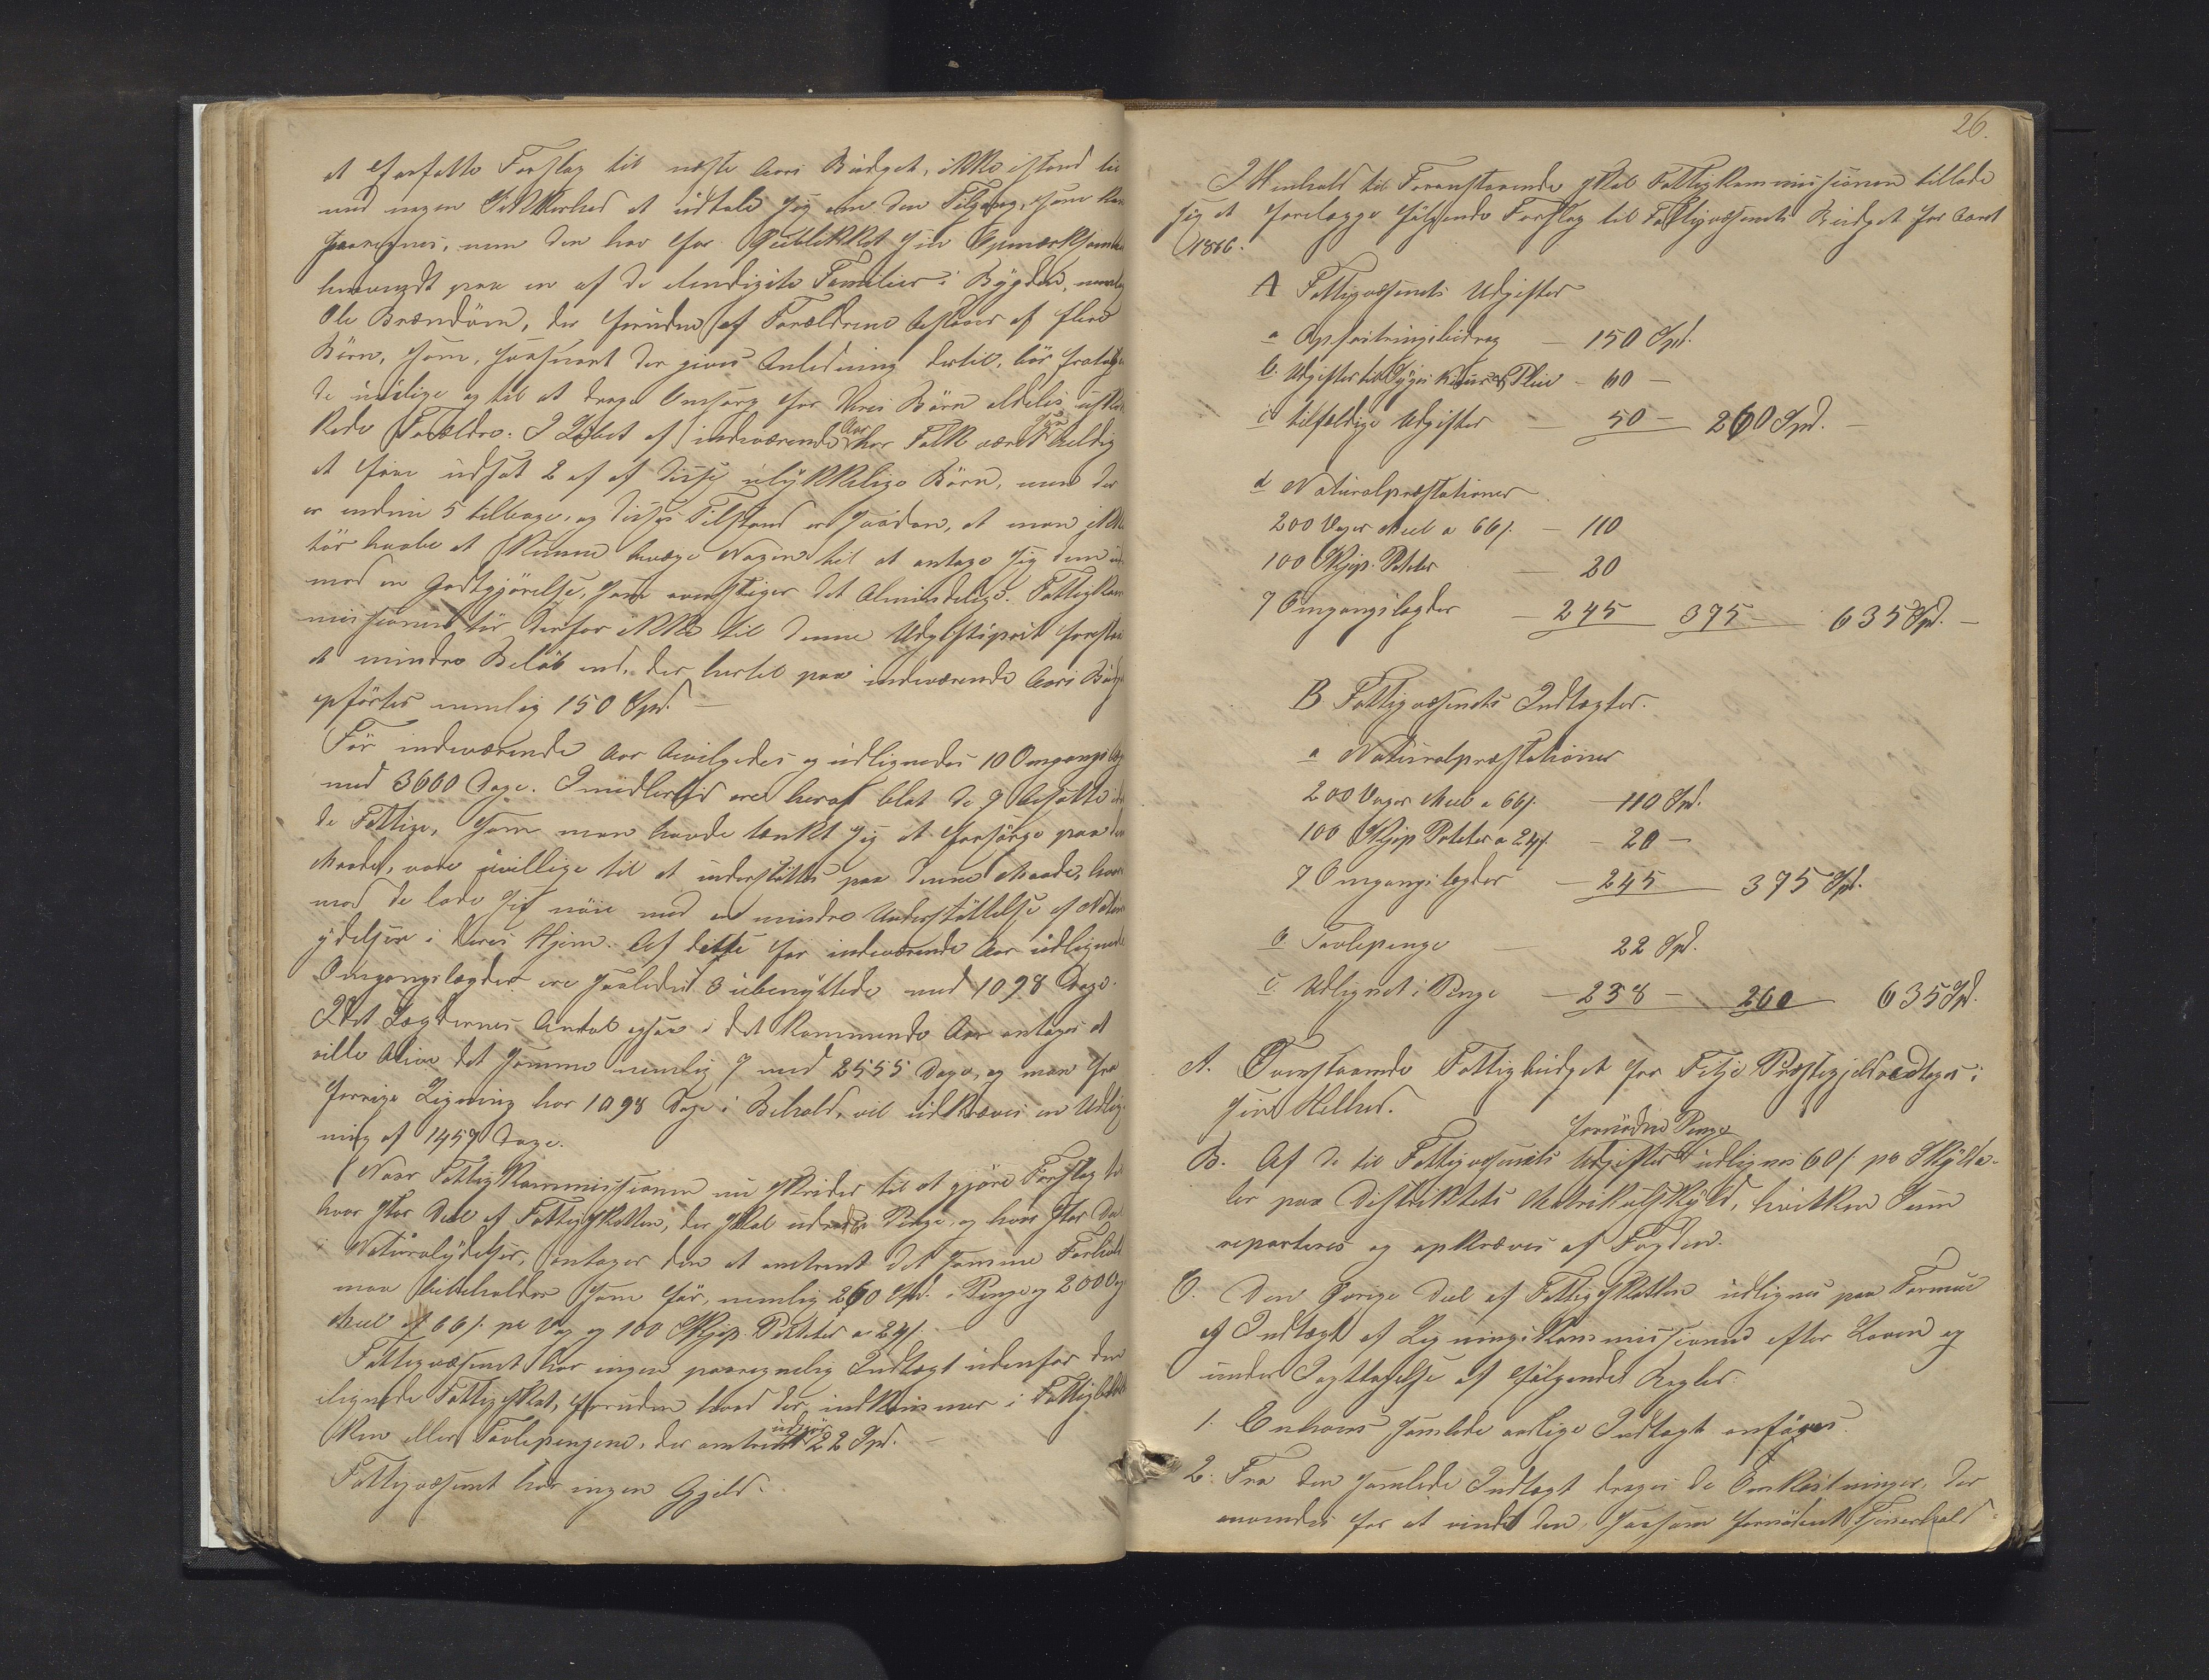 at forfatte Forslag til næste Aars Budget, ikke istand til
med nogen Sikkerhed at udtale sig om den Tilgang, som kan
paaregnes, men den har for Øieblikket sin Opmærksomhed
henvendt paa en af de elendigste Familier i Bygden, nemlig
Ole Brændøen, der foruden af Forældrene bestaaer af flere
Børn, som, saasnart der gives Anledning dertil, bør fratages
de uduelige og til at drage Omsorg for deres Børn aldeles uskik
kede Forældre. I Løbet af indeværende Aar har Folk været saa heldig
at faae udsat 2 af af disse ulykkelige Børn, men der
er endnu 5 tilbage, og disses Tilstand er saadan, at man ikke
tør haabe at kunne bevæge Nogen til at antage sig dem uden
mod en Godtgjørelse, som overstiger det Almindelige. Fattigkom
missionen tør derfor ikke til denne Udgiftspost foreslaae
et mindre Beløb end der hertil paa indeværende Aars Budget
opførtes nemlig 150 Spd. —
For indeværende Aar bevilgedes og udlignedes 10 Omgangslægder
med 3600 Dage. Imidlertid ere heraf blot de 7 besatte, idet
de Fattige, som man havde tænkt sig at forsørge paa den
Maade, vare uvillige til at understøttes paa denne Maade, hvor
mod de lode sig nøie med en mindre Understøttelse af Natural
ydelser i deres Hjem. Af dette for indeværende Aar udlignede
Omgangslægder ere saaledes 3 ubenyttede med 1098 Dage.
Idet Lægdernes Antal ogsaa i det kommende Aar antages at
ville blive det samme nemlig 7 med 2555 Dage, og man fra
forrige Ligning har 1098 Dage i Behold, vil udkræves en Udlig-
ning af 1457 Dage.
Naar Fattigkommissionen nu skrider til at gjøre Forslag til
hvor stor Deel af Fattigskatten, der skal udredes i Penge, og hvor stor Deel
i Naturalydelser, antager den at omtrent det samme Forhold
maa bibeholdes som før, nemlig 260 Spd. i Penge og 200 Vog
Meel at 66 s. pr Vog og 100 Skjp. Poteter a 24 s.
Fattigvæsenet har ingen paaregnelig Indtægt udenfor den
ulignede Fattigskat, foruden hvad der indkommer i Fattigbøs
sen eller Tavlepengene, der omtrent udgjør 22 Spd. —
Fattigvæsenet har ingen Gjeld.
26.
I Henhold til Foranstaaende skal Fattigkommissionen tillade
sig at forelægge følgende Forslag til Fattigvæsenets Budget for Aaret
1866.
A Fattigvæsenets Udgifter
a Opfostringsbidrag — 150 Spd.
b. Udgifter til Syges Kuur & Pleie - 60 —
c tilfældige Udgifter — 50 — 260 Spd. —
d Naturalpræstationer
200 Voger Meel a 66 s. — 110
100 Skjep. Poteter — 20
7 Omgangslægder — 245 375 — 635 Spd. —
B Fattigvæsenets Indtægter.
a Naturalpræstationer
200 Voger Meel a 66 s. — 110 Spd.
100 Skjep Poteter a 24 s. — 20 —
7 Omgangslægder — 245 — 375 Spd.
b Tavlepenge — 22 Spd.
c Udlignet i Penge — 238 — 260 635 Spd.
A. Foranstaaende Fattigbudget for Fitje Præstegjeld vedtages i
sin Helhed.
B. Af de til Fattigvæsenets Udgifter fornødne Penge udlignes 60 s. pr Skylda-
ler paa Distriktets Matrikulskyld, hvilken Sum
reparteres og opkræves af Fogden.
C. Den øvrige Deel af Fattigskatten udlignes paa Formue
og Indtægt af Ligningskommissionen efter Loven og
under Iagttagelse af følgende Regler:
1. Enhvers samlede aarlige Indtægt anføres.
2. Fra den samlede Indtægt drages de Omkostninger, der
anvendes for at vinde den, saasom fornødent Tjenerhold